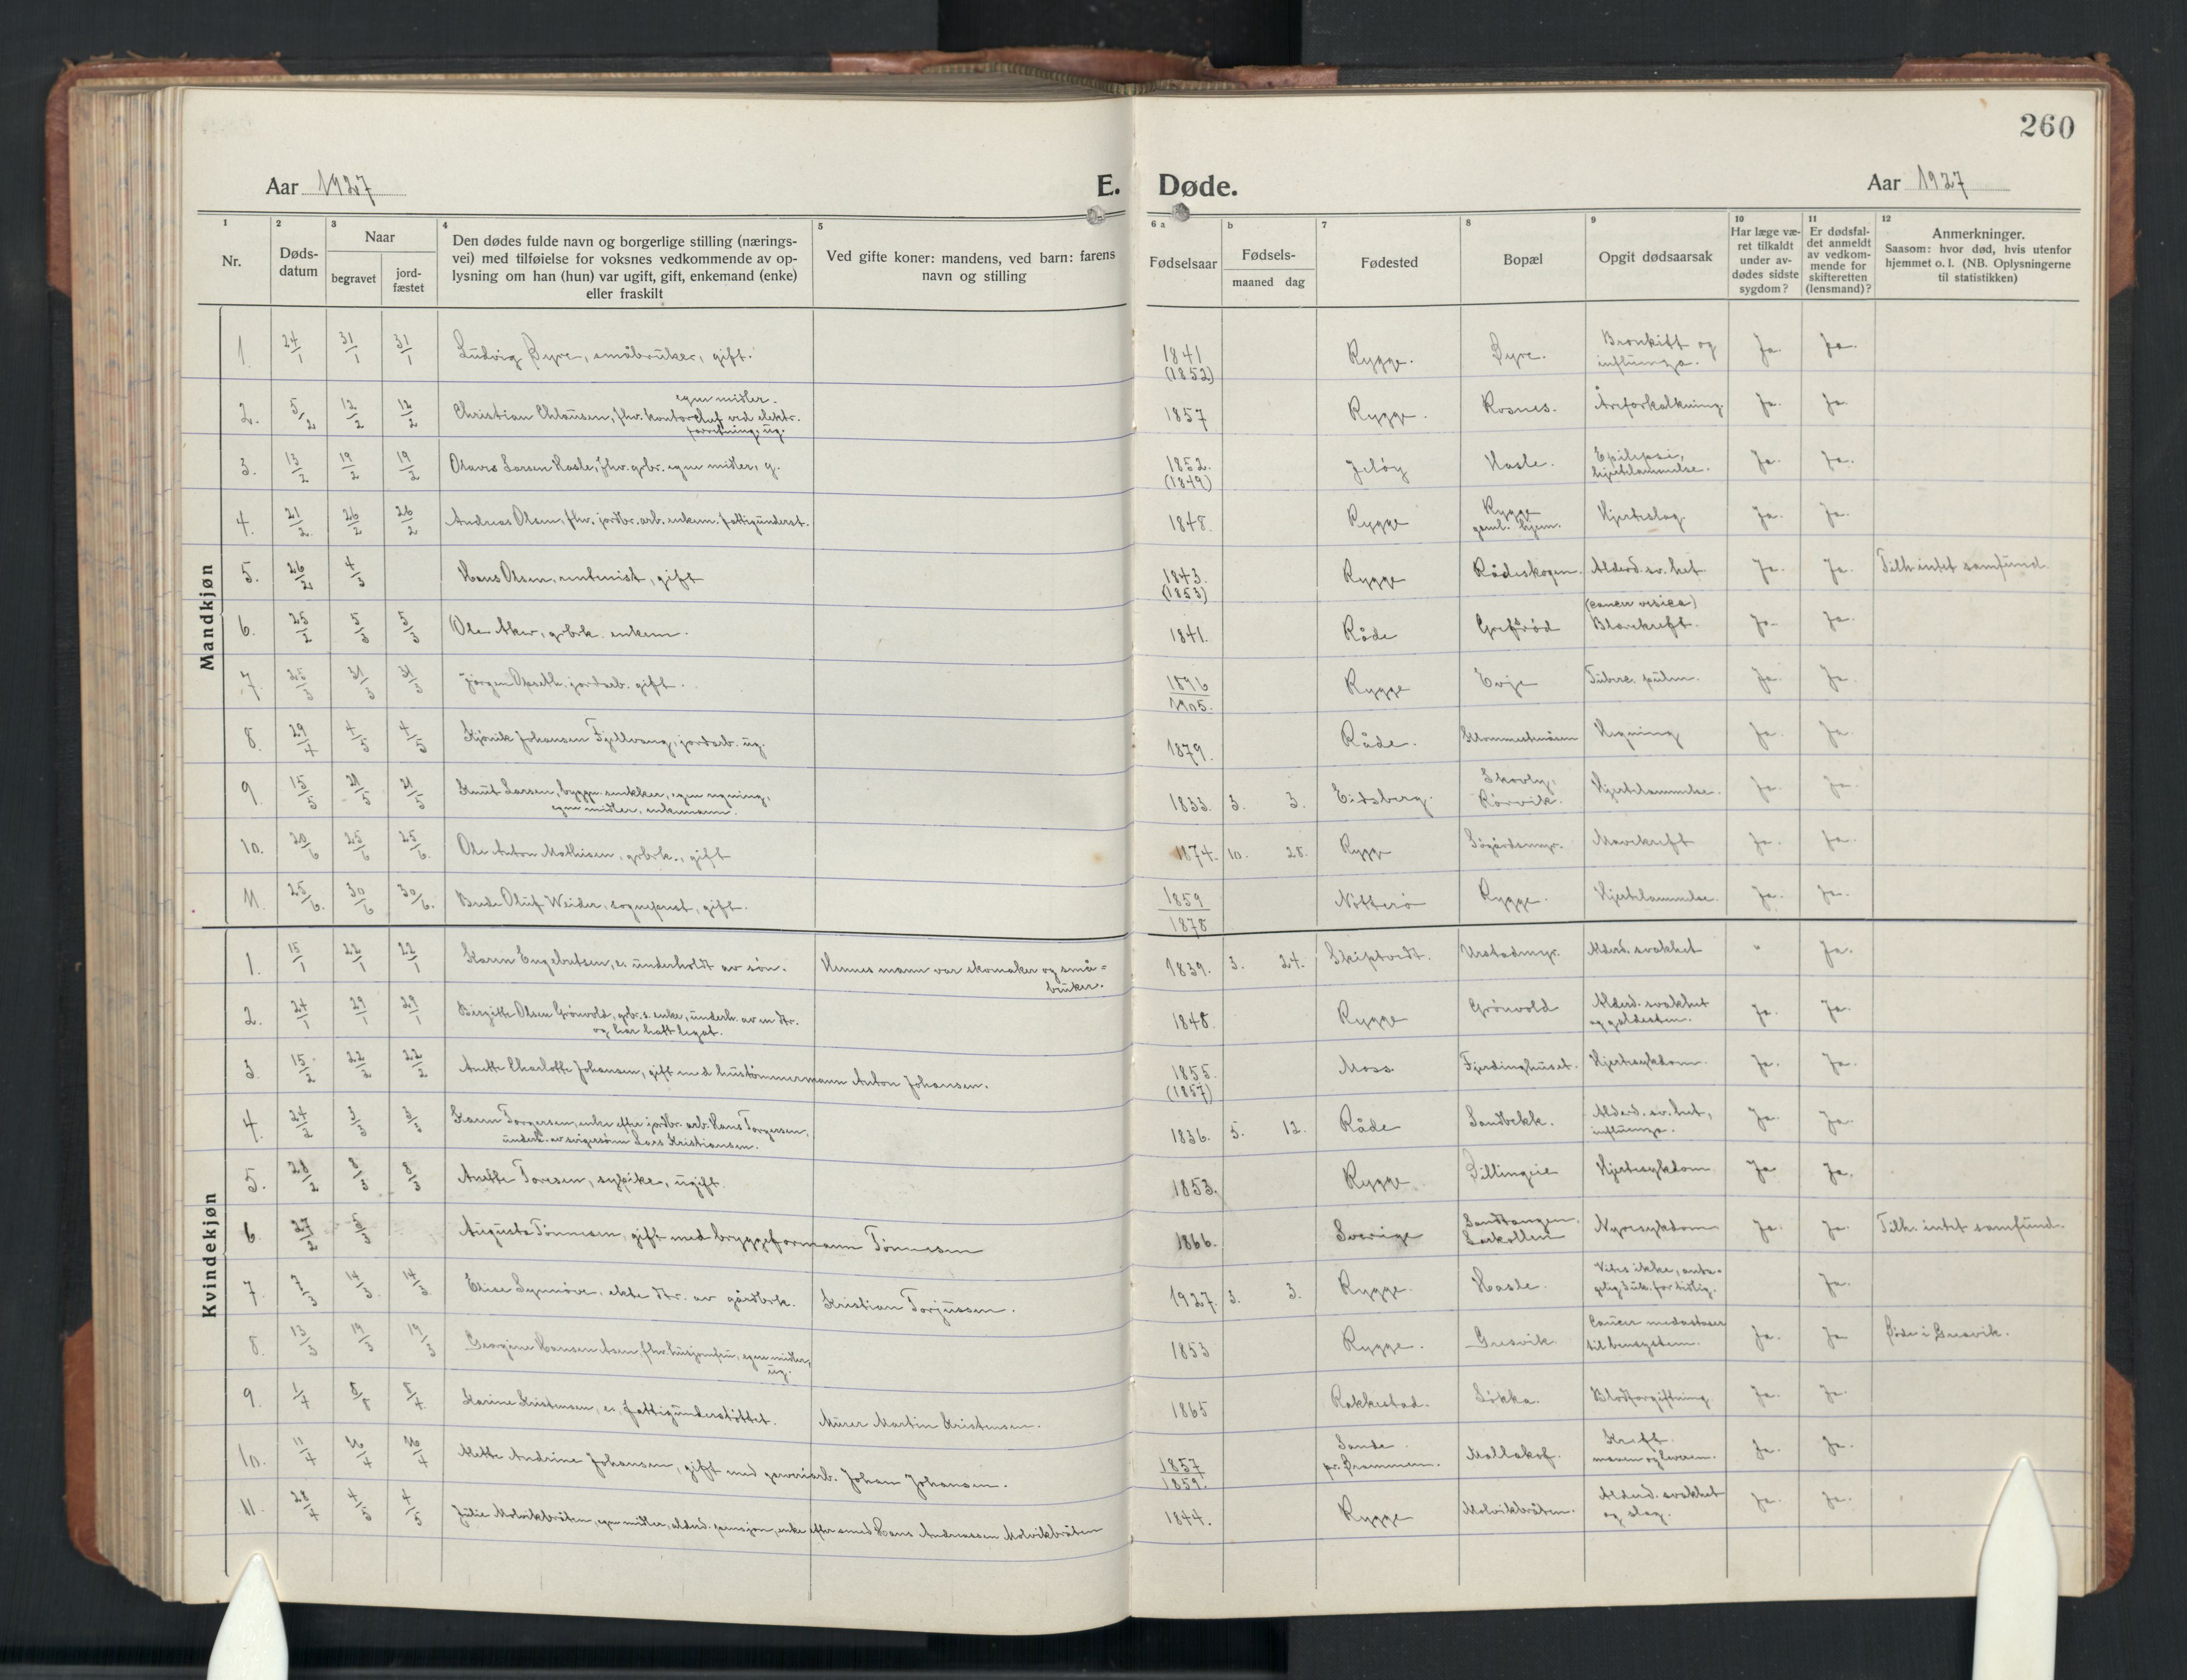 260
Aar 1927 E. Døde. Aar 1927
1 2 3 4 5 6 a b 7 8 9 10 11 12
Nr.
Døds-
datum
Naar
begravet
jord-
fæstet
Den dødes fulde navn og borgerlige stilling (nærings-
vei) med tilføielse for voksnes vedkommende av op-
lysning om han (hun) var ugift, gift, enkemand (enke)
eller fraskilt
Ved gifte koner: mandens, ved barn: farens
navn og stilling
Fødselsaar
Fødsels-
maaned dag
Fødested
Bopæl
Opgit dødsaarsak
Har læge væ-
ret tilkaldt
under av-
dødes sidste
sygdom?
Er dødsfal-
det anmeldt
av vedkom-
mende for
skifteretten
(lensmand)?
Anmerkninger.
Saasom: hvor død, hvis utenfor
hjemmet o. l. (NB. Oplysningerne
til statistikken)
Mandkjøn
1 24/1 31/1 31/1 Ludvig Dyre, småbruker, gift. 1841 Rygge. Dyre. Bronkitt og Ja. Ja.
(1852) influenza.
egne midler.
2. 5/2 12/2 12/2 Christian Clausen, fhv. kontorchef ved elektr. 1857 Rygge. Rosnes. Åreforkalkning. Ja. Ja.
forretning, ug.
3. 13/2 19/2 19/2 Olavs Larsen Hasle, fhv. grbr. egne midler, g. 1852. Jeløy Hasle. Epilepsi, Ja. Ja.
(1849) hjertelammelse.
4. 21/2 26/2 26/2 Andreas Olsen, fhv. jordbr. arb. enkem. fattigunderst. 1848. Rygge Rygge Hjerteslag. Ja. Ja.
gaml. hjem.
5. 26/2 4/3 Hans Olsen, rentenist, gift 1843. Rygge Rådeskogen. Alderd. sv. het. Ja. Ja. Tilh. intet samfund.
(1853)
(cancer vesica)
6. 25/2 5/3 5/3 Ole Aker, grbrk. enkem. 1841. Råde Grefsrød Blærekreft. Ja. Ja.
7. 25/3 31/3 31/3 Jørgen Opseth. jordarb. gift. 1896 Rygge Evje Tuberc. pulm. Ja. Ja.
1905.
8. 29/4 4/5 4/5 Johansen Fjellvang, jordarb. ug. 1879. Råde. Hegning Ja. Ja.
9 15/5 21/5 21/5 Knut Larsen, bygn. snekker, egen regning, 1833. 3. 3. Eidsberg. Skovly, Hjertelammelse. Ja. Ja.
egne midler, enkemann. Rørvik.
10. 20/6 25/6 25/6 Ole Anton Mathisen, grbrk., gift 1874. 10. 28. Rygge Søgårdsmyr. Mavekreft Ja. Ja.
11. 25/6. 30/6 30/6. Brede Oluf Weider, sogneprest, gift. 1859 Nøtterø Rygge. Hjertelammelse. Ja. Ja.
1878
Kvindekjøn
1. 15/1 22/1 22/1 Karen Engebretsen, e. underholdt av søn. Hennes mann var skomaker og små- 1839. 3. 24. Skiptvedt. Urstadmyr. Alderd. svakhet " Ja.
bruker.
2. 24/1 29/1 29/1 Birgitte Olsen Grønvold, grbr.s. enke, underh. av en dtr. 1848. Rygge Grønvold Alderd. svakhet Ja. Ja.
og har hatt legat. og galdesten.
3 15/2 22/2 22/2 Anette Charlotte Johansen, gift med hustømmermann Anton Johansen. 1855. Moss. Fjerdinghuset. Hjertesykdom. Ja. Ja.
(1857)
4. 24/2 3/3 3/3 Karen Torgersen, enke efter jordbr. arb. Hans Torgersen, 1836. 5. 12. Råde Sandbekk. Alderd. sv. het, Ja. Ja.
underh. av svigersønn Lars Kristiansen. influenza.
5. 28/2 8/3 8/3 Anette Toresen, sypike, ugift. 1853. Rygge Dillingeie Hjertesykdom Ja Ja.
6 27/2 5/3 Augusta Tønnesen, gift med bryggeformann Tønnesen 1866. Sverige Sandtangen. Nyresykdom Ja. Ja. Tilh. intet samfund.
Larkollen
7. 7/3 14/3. 14/3 Elise Synnøve, ekte dtr. av gårdbrk. Kristian Torjussen. 1927. 3. 3. Rygge. Hasle. Vites ikke, anta- Ja.
gelig født for tidlig.
8. 13/3 19/3 19/3 Georgine Hansen Åsen, fhv. husjomfru, egne midler, 1853 Rygge. Gresvik. Cancer medastaser Ja. Ja Døde i Gresvik.
ug. til bensystem.
9 1/4 5/4 Karine Kristensen, e. fattigunderstøttet. Murer Martin Kristensen. 1865 Rakkestad. Løkka. Blodforgiftning Ja. Ja.
10. 11/4 16/4 16/4 Mette Andrine Johansen, gift med garveriarb. Johan Johansen. 1857 Sande Mallakof. Kreft Ja. Ja.
1859. pr. Drammen. maven og leveren.
11. 28/4 4/5 4/5 Julie Molvikbråten, egne midler, alderd. pensjon, enke efter smed Hans Andreassen Molvikbråten 1844. Rygge Molvikbråten. Alderd. svakhet Ja. Ja.
og slag.